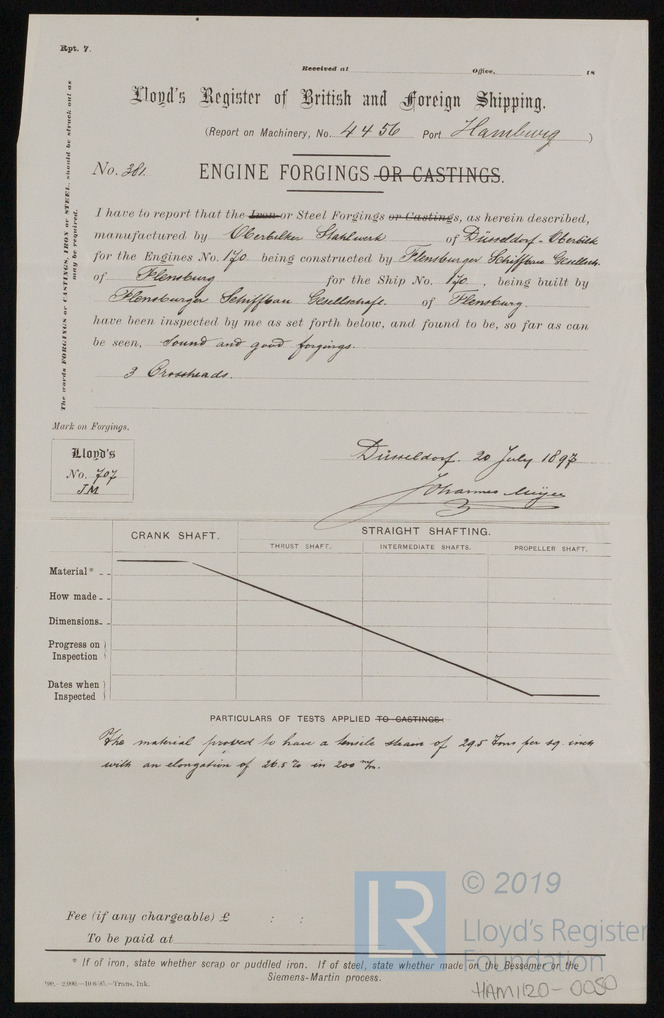 Rpt. 7.
Received at Office, 18
Lloyd's Register of British and Foreign Shipping.
(Report on Machinery, No. 4456 Port Hamburg )
No. 381. ENGINE FORGINGS OR CASTINGS.
The words FORGINGS or CASTINGS, IRON or STEEL, should be struck out as may be required.
I have to report that the Iron or Steel Forgings or Castings, as herein described,
manufactured by Oberbilker Stahlwerk of Düsseldorf-Oberbilk
for the Engines No. 170 being constructed by Flensburger Schiffbau Gesellsch.
of Flensburg for the Ship No. 170, being built by
Flensburger Schiffbau Gesellschaft. of Flensburg.
have been inspected by me as set forth below, and found to be, so far as can
be seen, sound and good forgings.
3 Crossheads.
Mark on Forgings.
Lloyd's
No. 707
JM
Düsseldorf. 20 July 1897
Johannes Meyer
CRANK SHAFT. STRAIGHT SHAFTING.
THRUST SHAFT. INTERMEDIATE SHAFTS. PROPELLER SHAFT.
Material*
How made
Dimensions
Progress on Inspection
Dates when Inspected
PARTICULARS OF TESTS APPLIED TO CASTINGS:
The material proved to have a tensile strain of 29.5 Tons per sq. inch
with an elongation of 26.5 % in 200 m/m.
Fee (if any chargeable) £ : :
To be paid at
* If of iron, state whether scrap or puddled iron. If of steel, state whether made on the Bessemer or the
Siemens-Martin process.
2,000.—10/6/95.—Trans. Ink.
LR
© 2019
Lloyd's Register
Foundation
HAM1120-0050